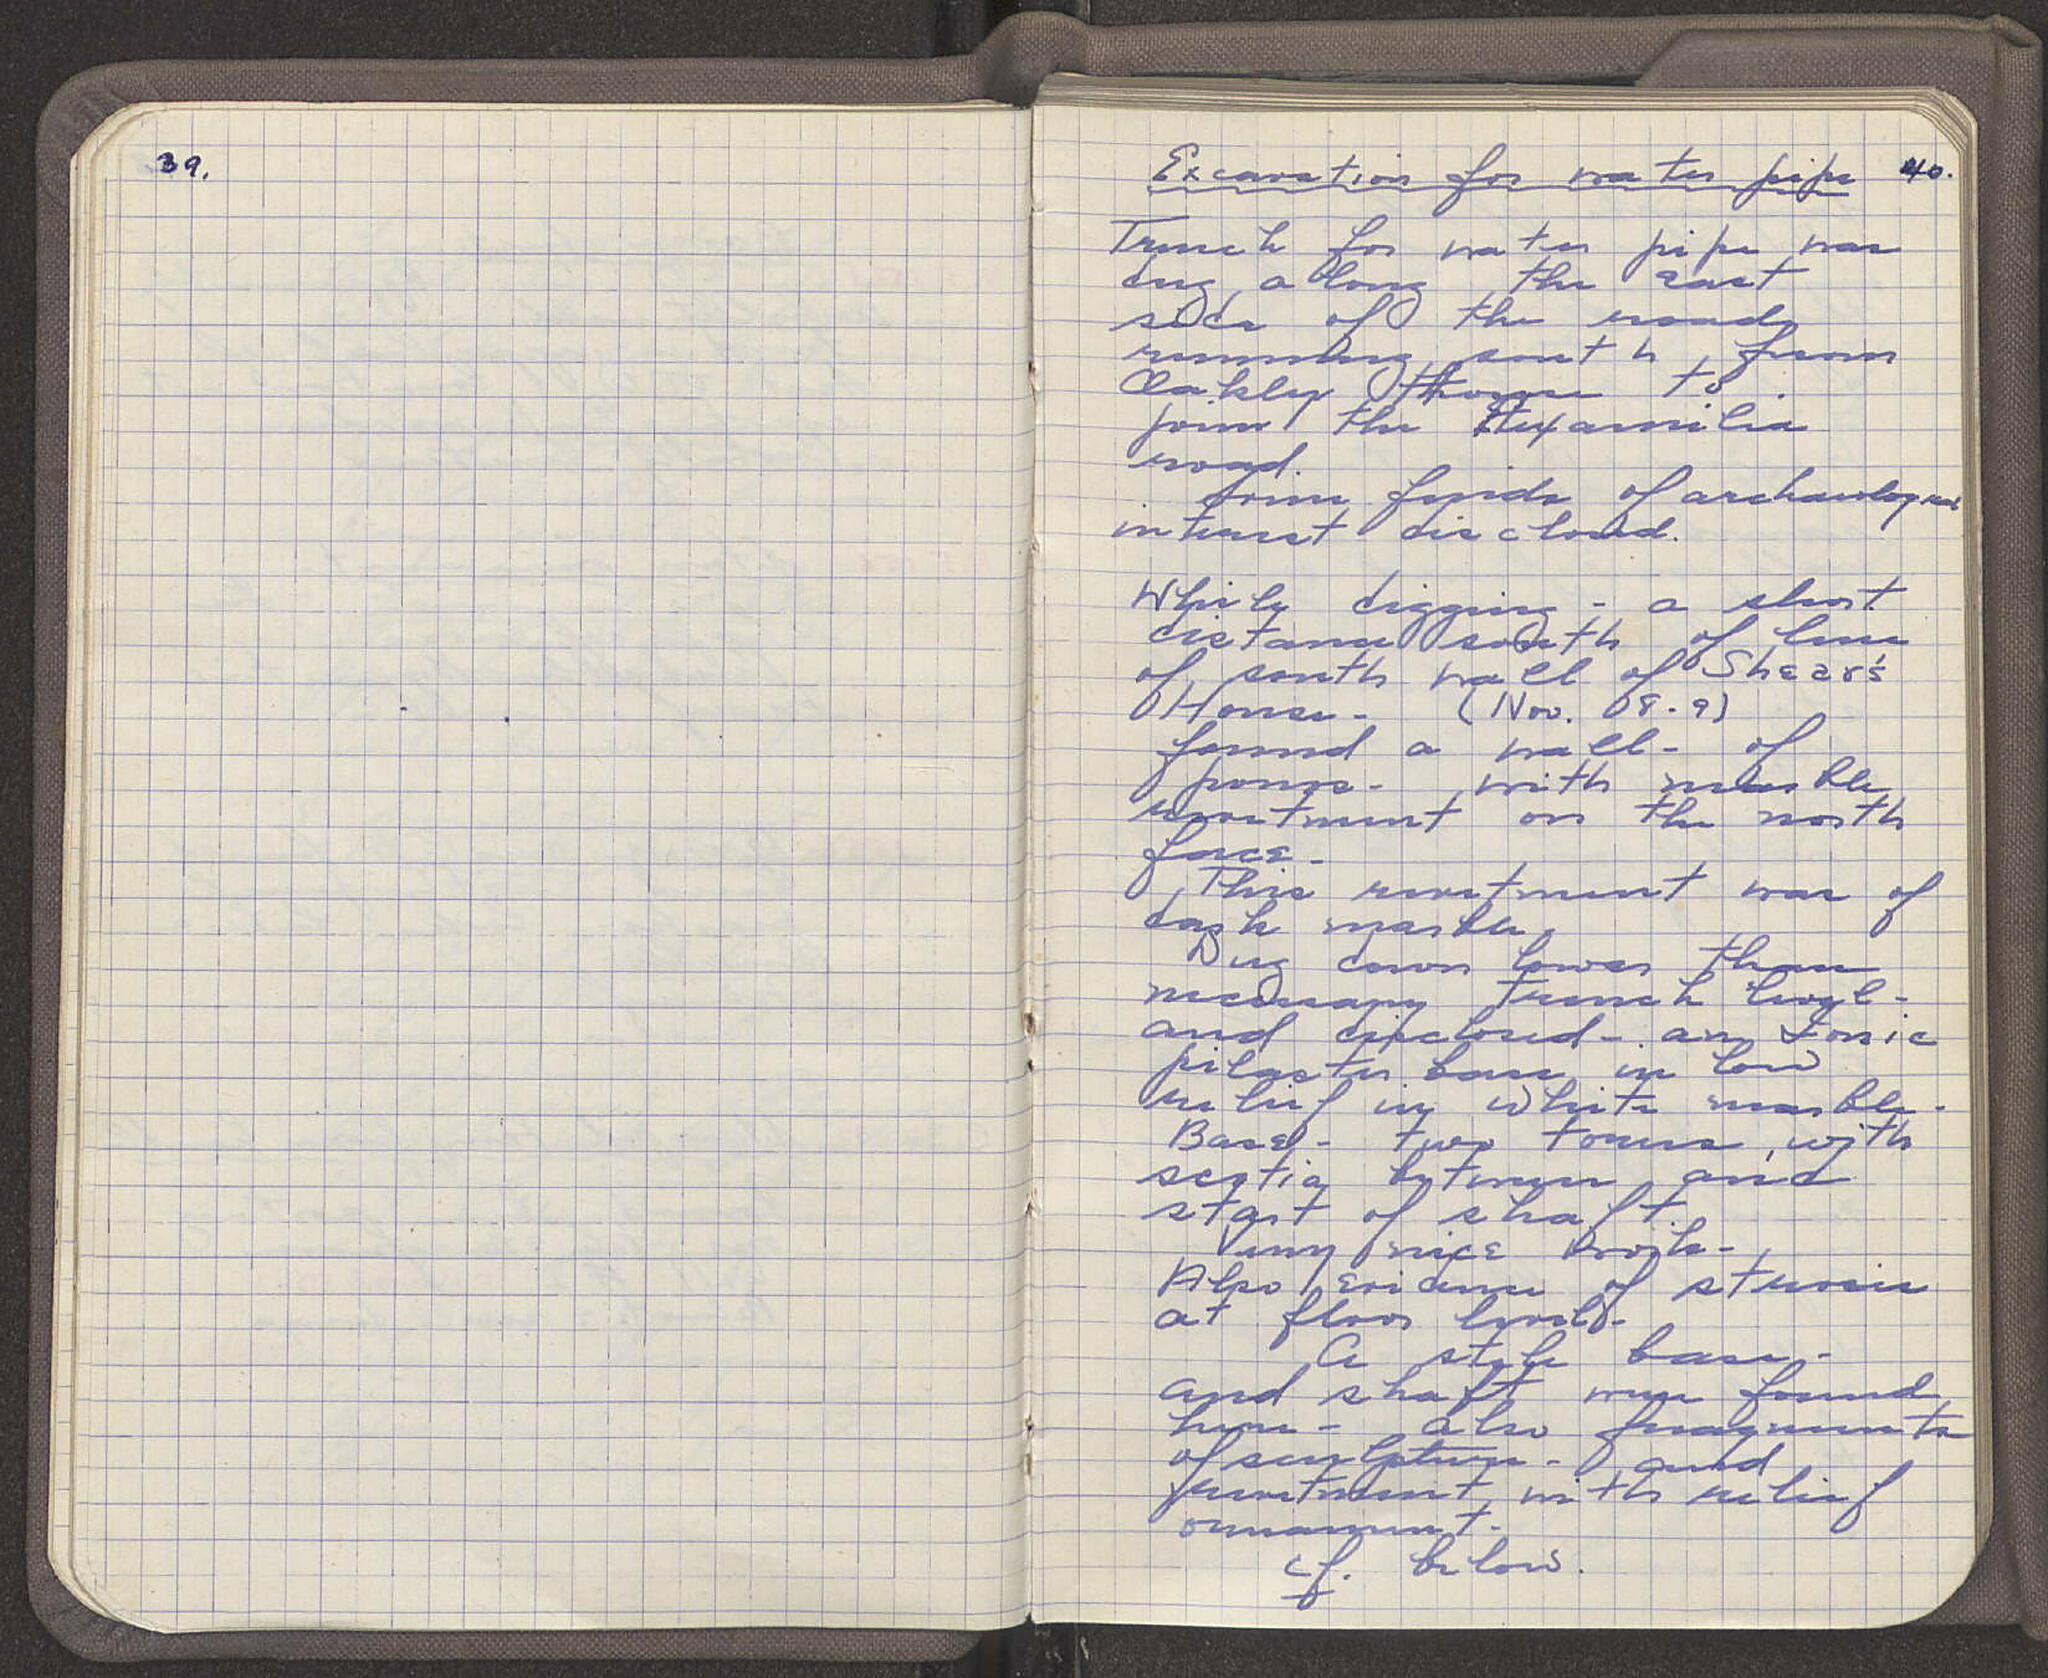 39.
40.
Excavation for water pipe
Trench for water pipe was
dug along the east
side of the road
running south, from
Oakley House to
join the Hexamilia
road.
Some finds of archaeological
interest disclosed.
While digging - a short
distance south of line
of south wall of Shear's
House - (Nov. 8-9)
found a wall - of
poros - with marble
revetment on the north
face -
This revetment was of
dark marble.
Dug down lower than
necessary trench level -
and disclosed - an Ionic
pilaster base in low
relief in white marble -
Base - two torus, with
scotia between and
start of shaft.
Very nice work -
Also evidence of
at floor level -
A style base -
and shaft were found
here - also fragments
of sculpture - and
revetment, with relief
ornament -
cf. below.